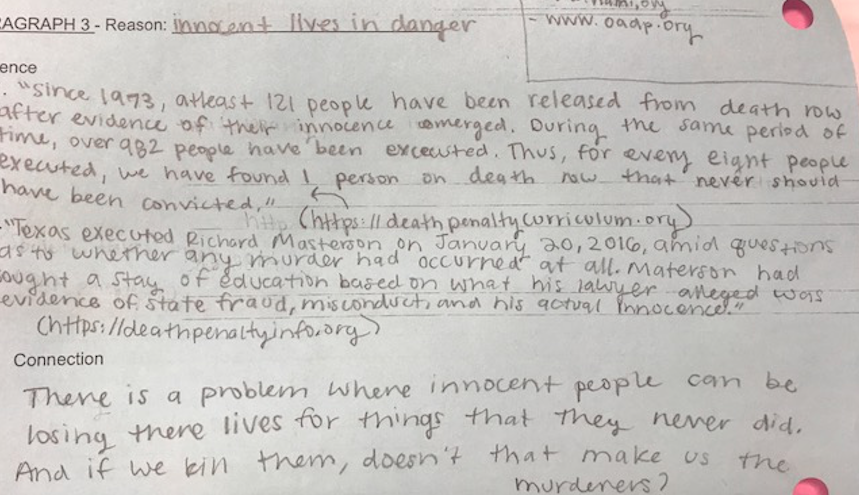 - www.oadp.org
AGRAPH 3 - Reason: innocent lives in danger
ence
. "Since 1973, atleast 121 people have been released from death row
after evidence of their innocence emerged. During the same period of
time, over 982 people have been excecuted. Thus, for every eight people
executed, we have found 1 person on death row that never should
have been convicted."
http (https://deathpenaltycurriculum.org)
- "Texas executed Richard Masterson on January 20, 2016, amid questions
as to whether any murder had occurred at all. Materson had
ought a stay of education based on what his lawyer alleged was
evidence of state fraud, misconduct, and his actual innocence."
(https://deathpenaltyinfo.org)
Connection
There is a problem where innocent people can be
losing there lives for things that they never did.
And if we kill them, doesn't that make us the
murderers?